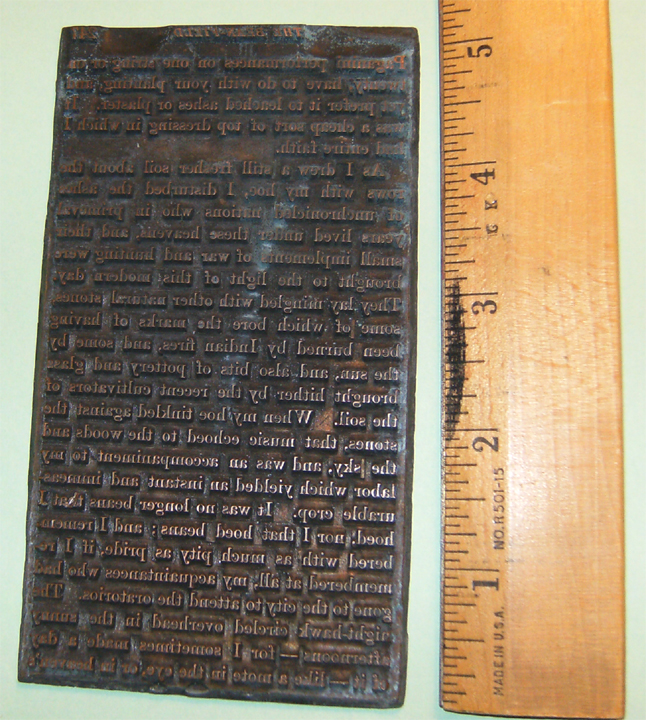 THE BEAN-FIELD
Paganini performances on one string or on
twenty, have to do with your planting, and
yet prefer it to leached ashes or plaster. It
was a cheap sort of top dressing in which I
had entire faith.
As I drew a still fresher soil about the
rows with my hoe, I disturbed the ashes
of unchronicled nations who in primeval
years lived under these heavens, and their
small implements of war and hunting were
brought to the light of this modern day.
They lay mingled with other natural stones,
some of which bore the marks of having
been burned by Indian fires, and some by
the sun, and also bits of pottery and glass
brought hither by the recent cultivators of
the soil. When my hoe tinkled against the
stones, that music echoed to the woods and
the sky, and was an accompaniment to my
labor which yielded an instant and immeas-
urable crop. It was no longer beans that I
hoed, nor I that hoed beans; and I remem-
bered with as much pity as pride, if I re-
membered at all, my acquaintances who had
gone to the city to attend the oratorios. The
night-hawk circled overhead in the sunny
afternoons — for I sometimes made a day
of it — like a mote in the eye, or in heaven's
5
4
3
2
1
NO.R501-15
MADE IN U.S.A.